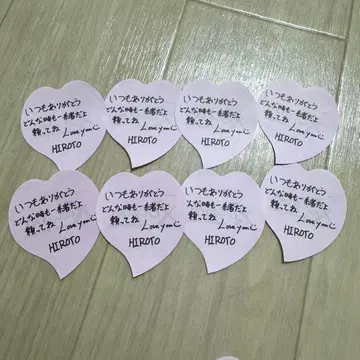 いつもありがとう
どんな時も一緒だよ
頼ってね Love you
HIROTO
いつもありがとう
どんな時も一緒だよ
頼ってね Love you
HIROTO
いつもありがとう
どんな時も一緒だよ
頼ってね Love you
HIROTO
いつもありがとう
どんな時も一緒だよ
頼ってね Love you
HIROTO
いつもありがとう
どんな時も一緒だよ
頼ってね Love you
HIROTO
いつもありがとう
どんな時も一緒だよ
頼ってね Love you
HIROTO
いつもありがとう
どんな時も一緒だよ
頼ってね Love you
HIROTO
いつもありがとう
どんな時も一緒だよ
頼ってね Love you
HIROTO